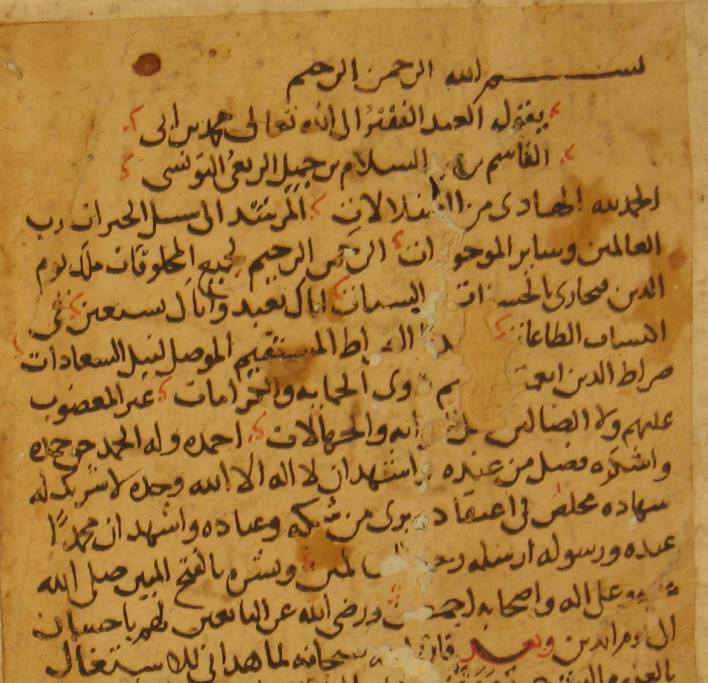 بسم الله الرحمن الرحيم
يقول العبد الفقير الى الله تعالى محمد بن ابى
القاسم بن السلام بن جميل الربعى التونسى
الحمد لله الهادى من الضلالات المرشد الى سبل الخيرات رب
العالمين وساير الموجودات الرحمن الرحيم لجميع المخلوقات ملك يوم
الدين مجازى بالحسنات السيات اياك نعبد واياك نستعين فى
اكتساب الطاعات الصراط المستقيم الموصل لنيل السعادات
صراط الذين انعمت ذوى الحمايه والكرامات غير المغضوب
عليهم ولا الضالين والجهالات احمده وله الحمد من حمده
واشكره فضل من عنده واشهد ان لا اله الا الله وحده لا شريك له
شهاده مخلص فى اعتقاده برى من شكه وعناده واشهد ان محمدا
عبده ورسوله ارسله رحمة للعالمين وبشره بالفتح المبين صلى الله
عليه وعلى اله واصحابه اجمعين ورضى الله عن التابعين لهم باحسان
الى يوم الدين وبعد فان الله سبحانه لما هدانى للاشتغال
بالعلوم